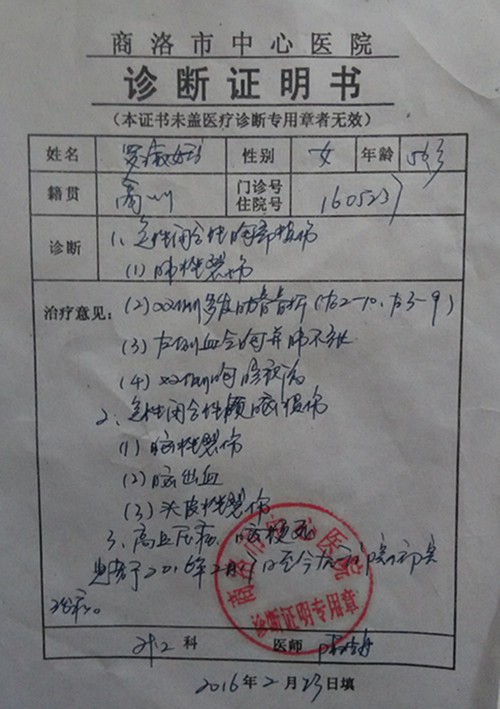 商洛市中心医院
诊断证明书
(本证书未盖医疗诊断专用章者无效)
姓名 性别 女 年龄 56岁
籍贯 商州 门诊号 住院号 160523
诊断 1、急性闭合性胸部损伤
(1)肺挫裂伤
治疗意见: (2)双侧多发肋骨骨折(右2-10,左3-9)
(3)左侧血气胸并肺不张
(4)双侧胸腔积液
2、急性闭合性颅脑损伤
(1)脑挫裂伤
(2)脑出血
(3)头皮挫裂伤
3、高血压病 脑梗死
患者于2016年2月 日至今在 院
治疗。
商洛市中心医院
诊断证明专用章
外二科 医师
2016年2月23日填